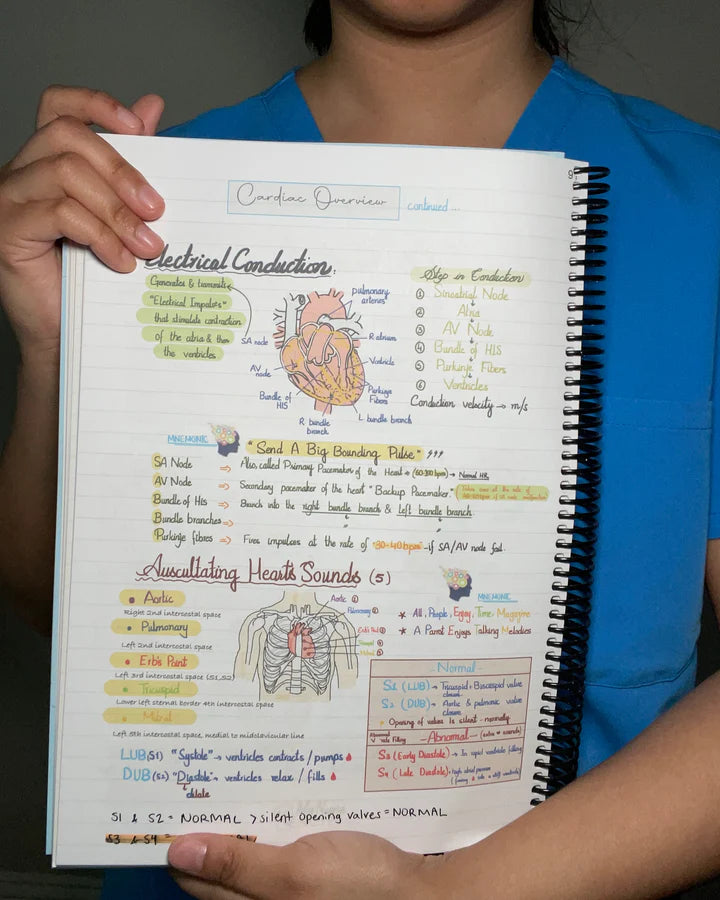 9
Cardiac Overview
continued ...
Electrical Conduction:
Generates & transmits
"Electrical Impulses"
that stimulate contraction
of the atria & the
the ventricles
pulmonary
arteries
SA node
R atrium
AV
node
Ventricle
Bundle of
HIS
Purkinje
Fibers
R bundle
branch
L bundle branch
Step in Conduction
① Sinoatrial Node
② Atria
③ AV Node
④ Bundle of HIS
⑤ Purkinje Fibers
⑥ Ventricles
Conduction velocity → m/s
MNEMONIC
"Send A Big Bounding Pulse"
SA Node ⇒ Also, called Primary Pacemaker of the Heart → (60-100 bpm) → Normal HR
AV Node ⇒ Secondary pacemaker of the heart "Backup Pacemaker"
Bundle of His ⇒ Branch into the right bundle branch & left bundle branch.
Bundle branches ⇒ " "
Purkinje fibres ⇒ Fires impulses at the rate of "30-40bpm" - if SA/AV node fail.
Auscultating Heart's Sounds (5)
• Aortic
Right 2nd intercostal space
• Pulmonary
Left 2nd intercostal space
• Erb's Point
Left 3rd intercostal space (S1,S2)
• Tricuspid
Lower left sternal border 4th intercostal space
• Mitral
Left 5th intercostal space, medial to midclavicular line
Aortic ①
Pulmonary ②
Erb's Point ③
Tricuspid ④
Mitral ⑤
MNEMONIC
* All, People, Enjoy, Time, Magazine
* A Parrot Enjoys Talking Melodies
- Normal -
S1 (LUB) → Tricuspid & Bicuspid valve
closure
S2 (DUB) → Aortic & pulmonic valve
closure
* Opening of valves is silent - normally
- Abnormal - (extra ♥ sounds)
S3 (Early Diastole) → In rapid ventricle filling
S4 (Late Diastole) → high atrial pressure
LUB(S1) "Systole" → ventricles contracts / pumps
DUB(S2) "Diastole" → ventricles relax / fills
dilate
S1 & S2 = NORMAL > silent opening valves = NORMAL
S3 & S4 =